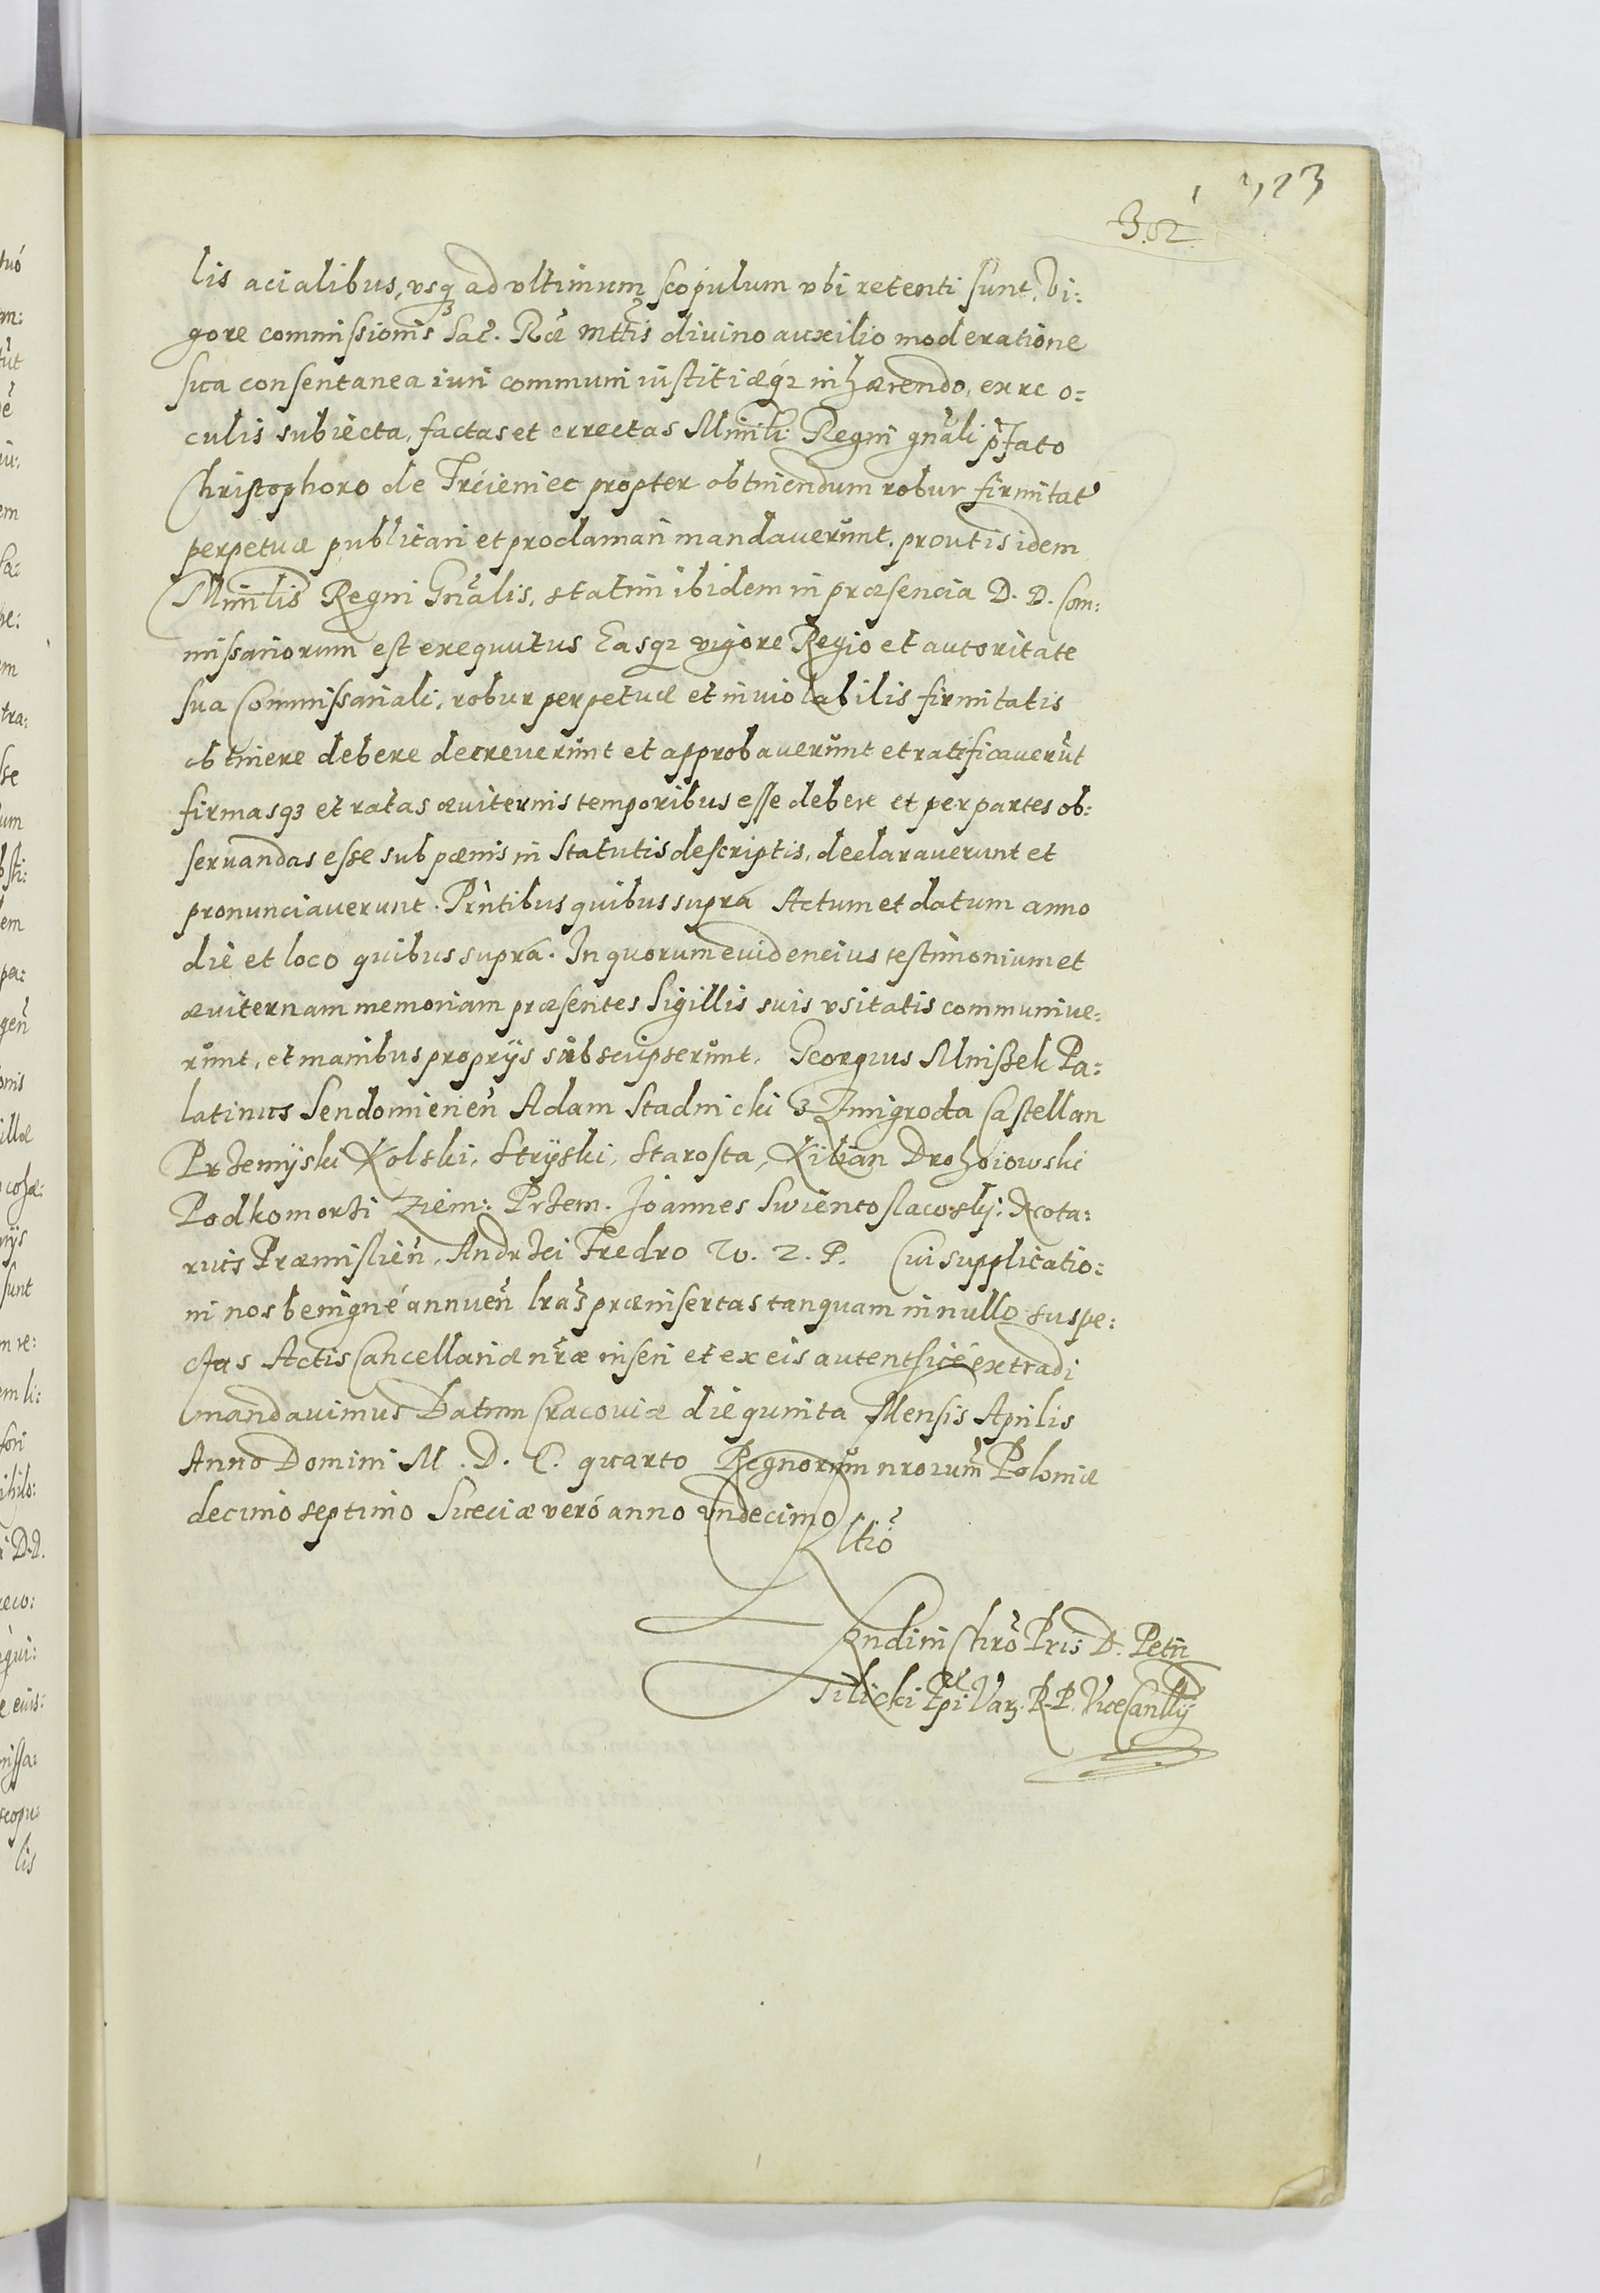 323
302
lis acialibus, vsq3 ad vltimum scopulum vbi retenti sunt, Vi:
gore commissionis Sac̃. Ræ Mttis divino auxilio moderatione
sua consentanea iuri communi iustitiæq3 inhærendo, ex re o=
culis subiecta, factas et errectas Minrli Regni gnãli p̃fato
Christophoro de Trcieniec propter obtinendum robur firmitat̃
perpetuæ publicari et proclamari mandauerũnt, prout is idem
Minrlis Regni Gnãlis, statim ibidem in præsencia D. D. Com:
missariorum est exequutus Easq3 vigore Regio et autoritate
sua Commissariali, robur perpetuæ et inviolabilis firmitatis
obtinere debere decreverũnt et approbaverũnt et ratificaverũt
firmasq3 et ratas æviternis temporibus esse debere et per partes ob:
servandas esse sub pœnis in Statutis descriptis, declaraverunt et
pronunciaverunt. Pñtibus quibus supra Actum et datum anno
die et loco quibus suprá. In quorum evidencius testimonium et
æviternam memoriam præsentes Sigillis suis vsitatis communive:
rũnt, et manibus proprijs sũbscripserũnt. Georgius Mnißek Pa:
latinus Sendomirieñ Adam Stadnicki z Zmigroda Castellan
Przemÿski Kolski, Strÿski, Starosta, Kilian Drohoiowski
Podkomorzi Ziem: Przem. Joannes Swientoslawskÿ: Nota:
rius Præmislieñ, Andrzei Fredro W. Z. P. Cui supplicatio:
ni nos benigné annueñ lrãs præinsertas tanquam in nullo suspe:
ctas Actis Cancellariæ nr̃æ inseri et ex eis autenthicé extradi
mandavimus Datum Cracoviæ die quinta Mensis Aprilis
Anno Domini M. D. C. quarto Regnorũm nrorum̃ Poloniæ
decimo septimo Sueciæ veró anno vndecimo
Rltiõ
Rndi in Chrõ Pris D. Petri
Tilicki Epi Var. R. P. ViceCanllÿ